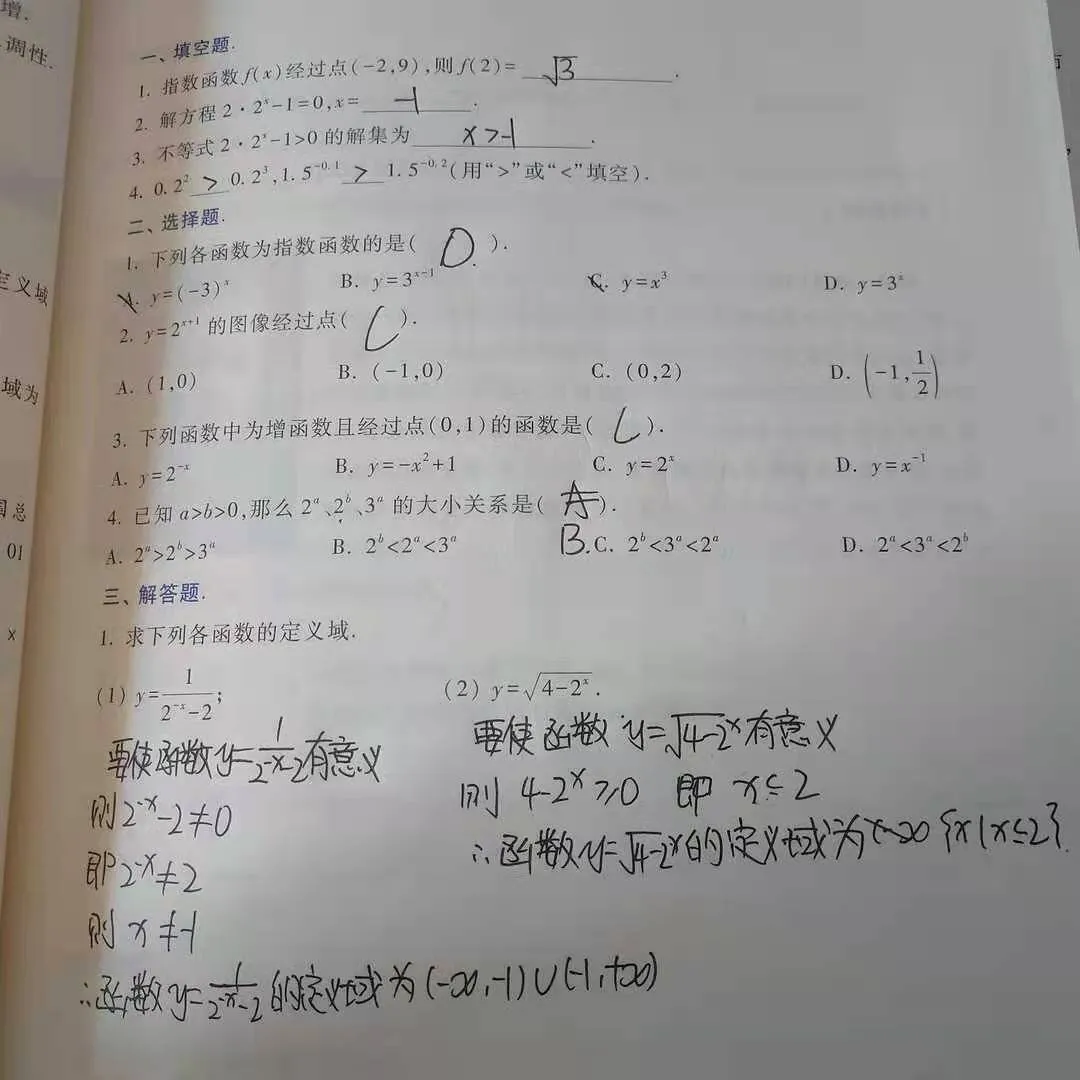 增.
调性.
定义域
域为
国总
01
x
一、填空题.
1. 指数函数 f(x) 经过点(-2,9),则 f(2)= √3 .
2. 解方程 2·2ˣ-1=0,x= -1 .
3. 不等式 2·2ˣ-1>0 的解集为 x>-1 .
4. 0.2² > 0.2³,1.5⁻⁰·¹ > 1.5⁻⁰·²(用“>”或“<”填空).
二、选择题.
1. 下列各函数为指数函数的是( D ).
A. y=(-3)ˣ B. y=3ˣ⁻¹ C. y=x³ D. y=3ˣ
2. y=2ˣ⁺¹ 的图像经过点( C ).
A. (1,0) B. (-1,0) C. (0,2) D. (-1,1/2)
3. 下列函数中为增函数且经过点(0,1)的函数是( C ).
A. y=2⁻ˣ B. y=-x²+1 C. y=2ˣ D. y=x⁻¹
4. 已知 a>b>0,那么 2ᵃ、2ᵇ、3ᵃ 的大小关系是( A ).
B.
A. 2ᵃ>2ᵇ>3ᵃ B. 2ᵇ<2ᵃ<3ᵃ C. 2ᵇ<3ᵃ<2ᵃ D. 2ᵃ<3ᵃ<2ᵇ
三、解答题.
1. 求下列各函数的定义域.
(1) y=1/(2⁻ˣ-2); (2) y=√(4-2ˣ).
要使函数 y=1/(2⁻ˣ-2) 有意义
则 2⁻ˣ-2≠0
即 2⁻ˣ≠2
则 x≠-1
∴函数 y=1/(2⁻ˣ-2) 的定义域为 (-∞,-1)∪(-1,+∞)
要使函数 y=√(4-2ˣ) 有意义
则 4-2ˣ≥0 即 x≤2
∴函数 y=√(4-2ˣ) 的定义域为 {x|x≤2}.